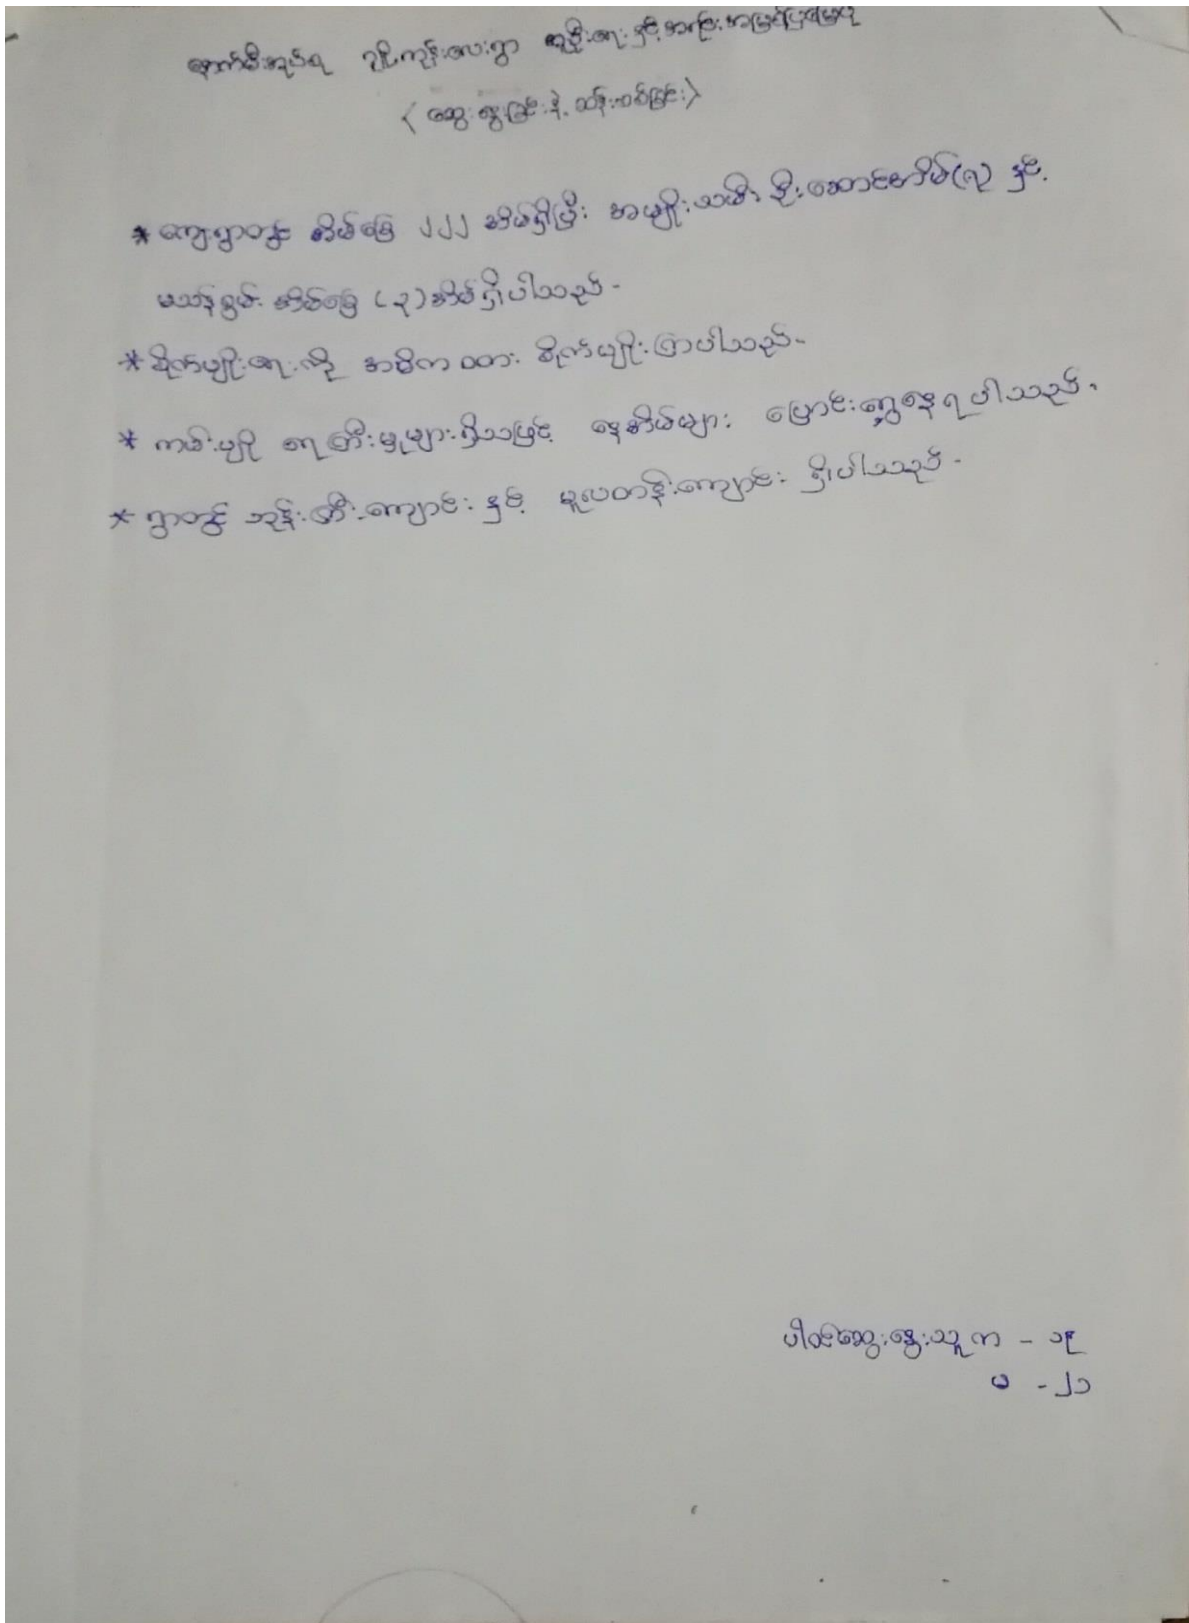 နောက်မီးအုပ်စု ကုန်းလေးရွာ လူဦးရေ နှင့် အရင်းအမြစ်ပြမြေပုံ
< ဆွေးနွေးခြင်းနဲ့ ဆန်းစစ်ခြင်း >
* ကျေးရွာတွင် အိမ်ခြေ ၂၂၂ အိမ်ရှိပြီး အမျိုးသမီး ဦးဆောင်အိမ်(၇) နှင့်
မသန်စွမ်း အိမ်ခြေ (၃)အိမ်ရှိပါသည်-
* စိုက်ပျိုးရေးကို အဓိကထား စိုက်ပျိုးကြပါသည်-
* ကမ်းပျို ရေကြီးမှုများရှိသဖြင့် နေအိမ်များ ပြောင်းရွှေ့နေရပါသည်,
* ရွာတွင် ဘုန်းကြီးကျောင်း နှင့် မူလတန်းကျောင်း ရှိပါသည်-
ပါဝင်ဆွေးနွေးသူ က - ၁၉
မ - ၂၁